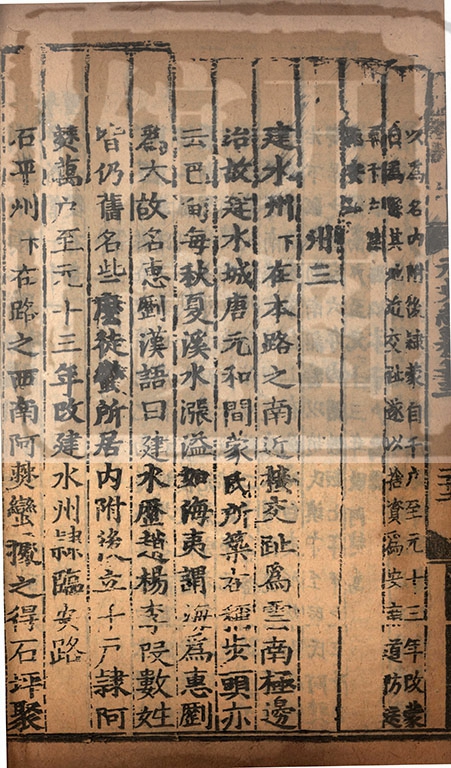 以為名內附後隸蒙自千户至元十三年改蒙
自為縣其地近交趾遂以捨資為安南道防送
軍千户隸
州三
建水州下在本路之南近接交趾爲雲南極邊
治故建水城唐元和間蒙氏所築古稱步頭亦
云巴甸每秋夏溪水漲溢如海夷謂海爲惠劉
爲大故名惠劉漢語曰建水歷趙楊李段數姓
皆仍舊名些麽徒蠻所居内附後立千户隸阿
僰萬户至元十三年改建水州隸臨安路
石平州下在路之西南阿僰蠻據之得石坪聚